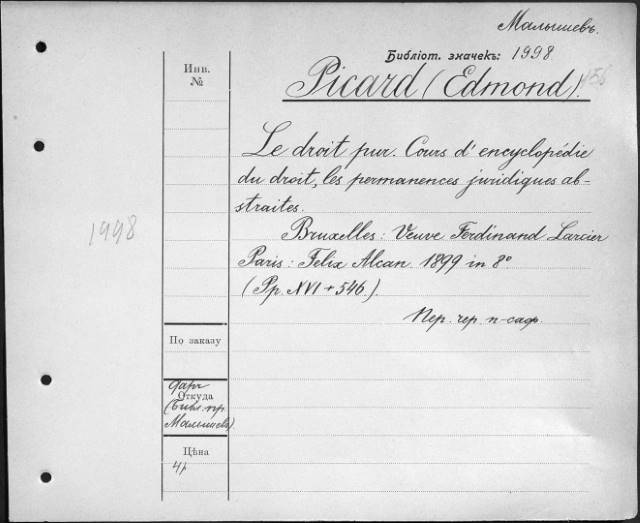 Малышевъ.
Библіот. значекъ: 1998
Инв.
№
Picard (Edmond).
Le droit pur. Cours d'encyclopédie
du droit, les permanences juridiques ab-
straites.
1998
Bruxelles: Veuve Ferdinand Larcier
Paris: Felix Alcan. 1899 in 8°
(Pp. XVI + 546.)
Пер. чер. п-саф.
По заказу
Даръ
Откуда
(Библ. пр.
Малышева).
Цѣна
4р